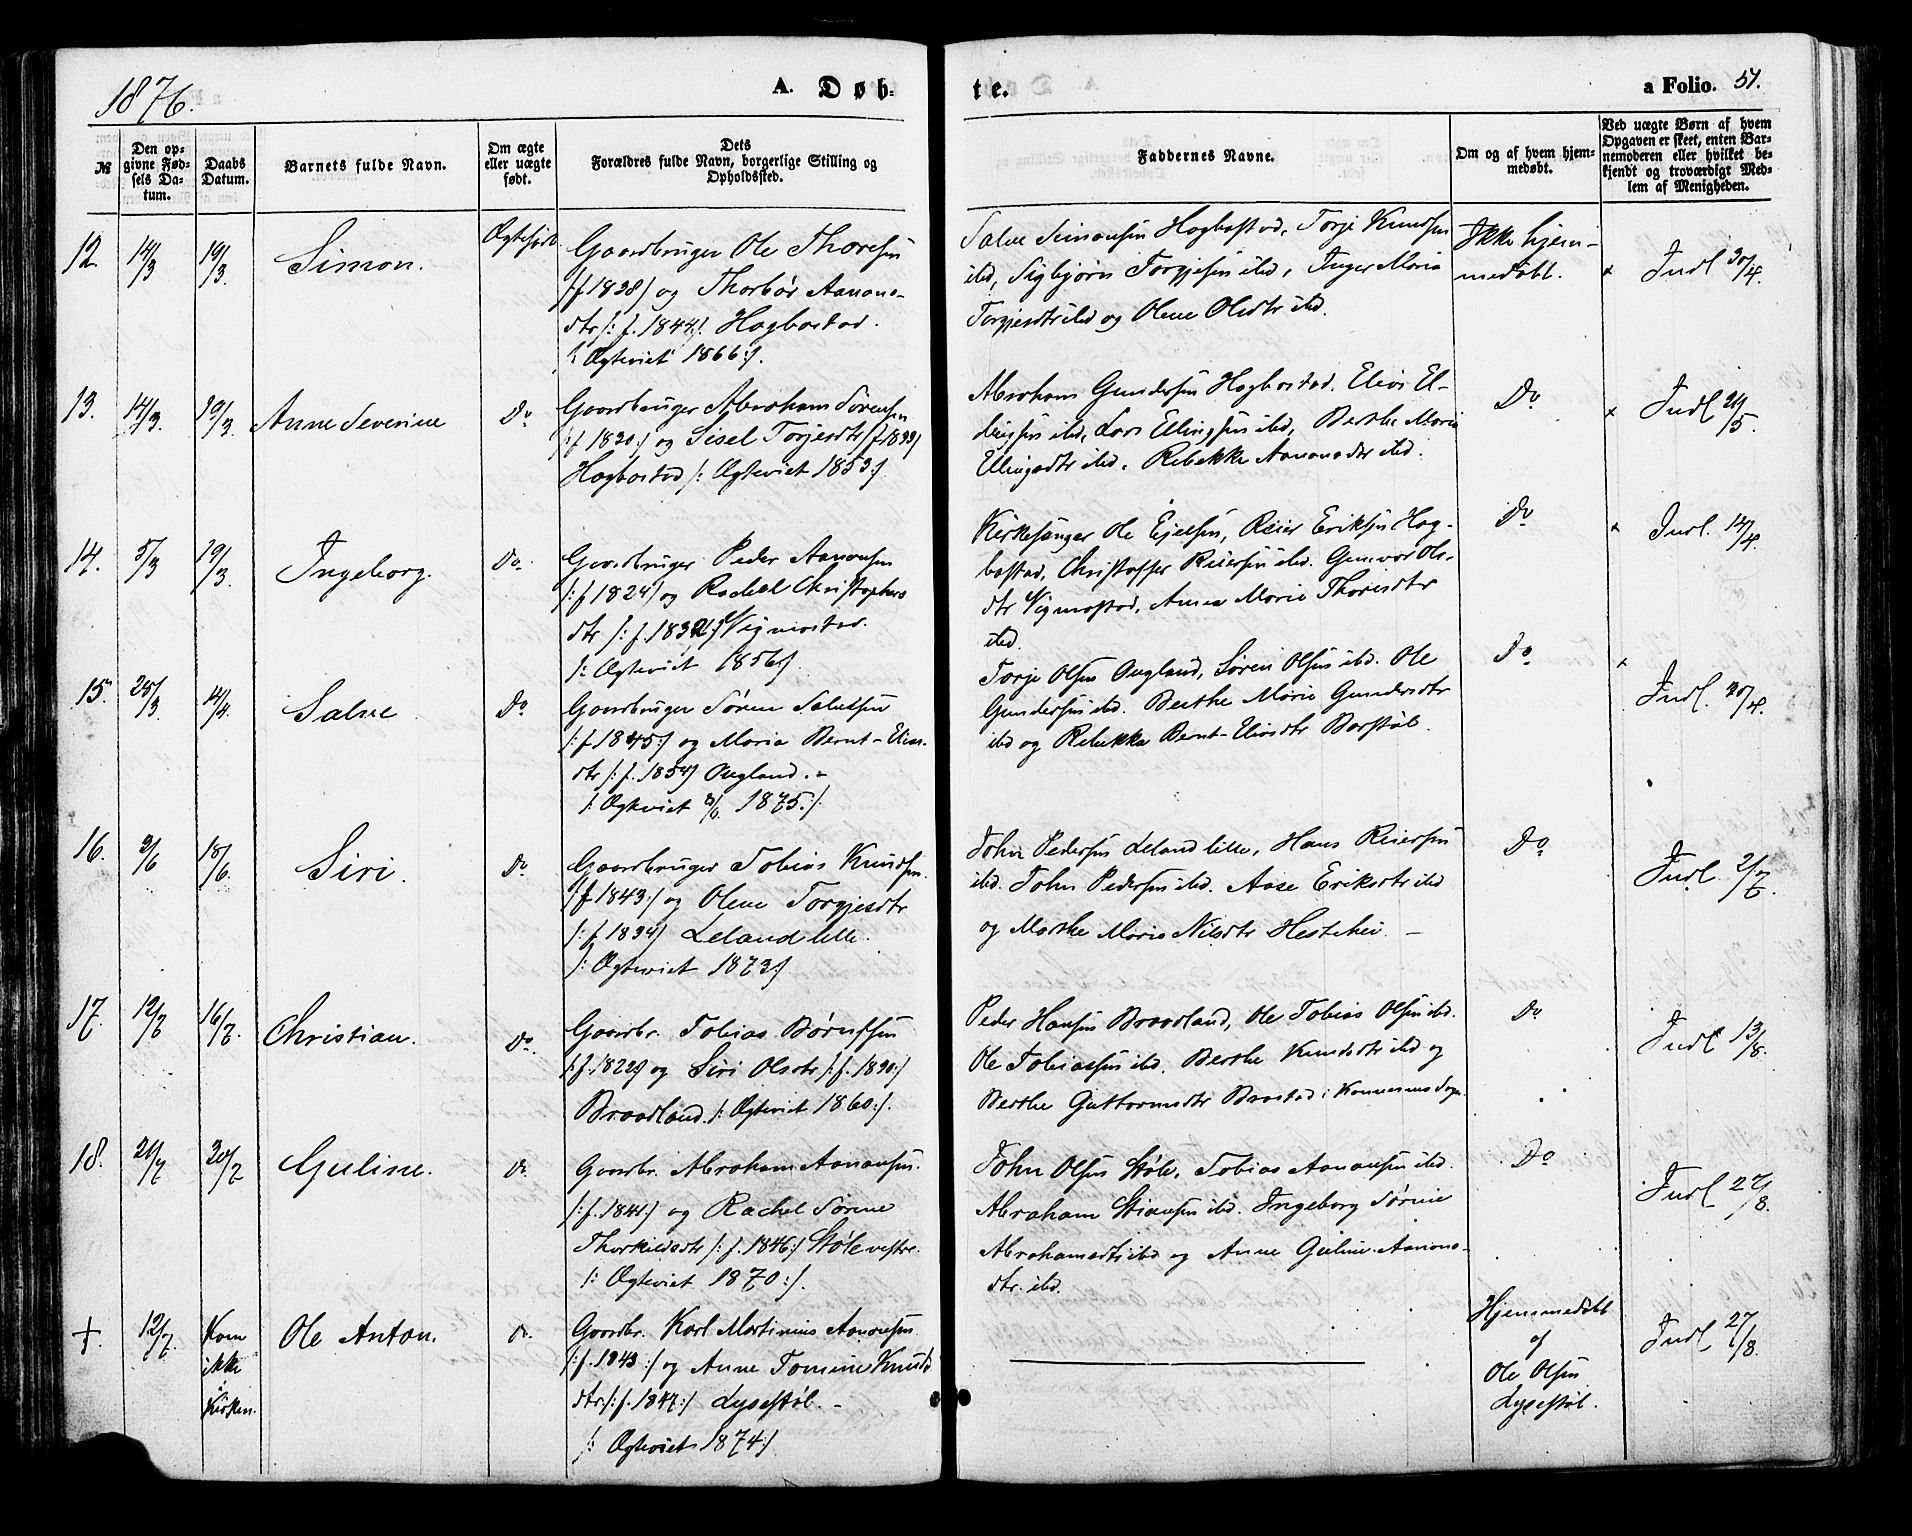 1876.
A. Døb-
te.
a Folio. 51.
№
Den op-
givne Fød-
sels Da-
tum.
Daabs
Datum.
Barnets fulde Navn.
Om ægte
eller uægte
født.
Dets
Forældres fulde Navn, borgerlige Stilling og
Opholdssted.
Faddernes Navne.
Om og af hvem hjem-
medøbt.
Ved uægte Børn af hvem
Opgaven er skeet, enten Bar-
nemoderen eller hvilket be-
kjendt og troværdigt Med-
lem af Menigheden.
12 14/3 19/3 Simon. Ægtefødt
Gaardbruger Ole Thoresen
/: f 1838 / og Thorbør Aanons-
dtr /: f. 1844 /. Hogbostad.
/: Ægteviet 1866 :/.
Salve Simonsen Hogbostad, Torje Knudsen
ibd, Sigbjørn Torgjesen ibd, Inger Maria
Torgjesdtr ibd og Olene Olsdtr ibd.
Ikke hjem-
medøbt.
x Indl 30/4.
13. 14/3 19/3. Anne Severine Do
Gaardbruger Abraham Sørensen
/: f 1830 :/ og Sisel Torjesdtr / f 1833 /
Hogbostad /: Ægteviet 1853 :/
Abraham Gundersen Hogbostad. Elias El-
lingsen ibd, Lars Ellingsen ibd, Berthe Maria
Ellingsdtr ibd. Rebekke Aanonsdtr ibd.
Do
x Indl 21/5.
14. 5/3 19/3. Ingeborg. Do
Gaardbruger Peder Aanonsen
/: f 1824 / og Rachel Christophers
dtr /: f. 1832 :/ Vigmostad.
/: Ægteviet 1856 /.
Kirkesanger Ole Ejelsen, Reier Eriksen Hog-
bostad, Christoffer Reiersen ibd. Gunvor Ols-
dtr Vigmostad, Anna Marie Thoresdtr
ibd.
Do
x Indl. 14/4.
15. 25/3 14/4. Salve Do
Gaardbruger Søren Salvesen
/: f 1845 :/ og Maria Bernt-Elias-
dtr /: f. 1854 / Augland.-
/: Ægteviet 1875. /:
Torje Olsen Augland, Søren Olsen ibd. Ole
Gundersen ibd. Berthe Marie Gundersdtr
ibd og Rebekka Bernt-Eliasdtr Barstøl.
Do
x
Indl. 20/4.
16. 3/6 18/6. Siri. Do
Gaardbruger Tobias Knudsen.
/: f 1843 :/ og Olene Torgjesdtr
/: f. 1834 / Leland lille.
/: Ægteviet 1873 :/
John Pedersen Leland lille, Hans Reiersen
ibd. John Pedersen ibd. Aase Eriksdtr ibd
og Marthe Maria Nilsdtr Hestehei. -
Do
Indl. 2/7.
17. 12/7 16/7. Christian. Do.
Gaardbr. Tobias Børufsen
/: f. 1822 / og Siri Olsdtr /: f. 1830 :/
Braadland. /: Ægteviet 1860 :/.
Peder Hansen Braadland, Ole Tobias Olsen ibd.
Ole Tobiassen ibd. Berthe Knudsdtr ibd og
Berthe Guttormsdtr Brastad i Konnesmo Sogn
Do
Indl 13/8.
18. 21/7 30/7 Guline. Do.
Gaardbr. Abraham Aanonsen.
/: f. 1841 :/ og Rachel Sørine
Thorkildsdtr /: f. 1846 :/ Støle vestre.
/: Ægteviet 1870 :/.
John Olsen Støle, Tobias Aanonsen ibd.
Abraham Stiansen ibd. Ingeborg Sørine
Abrahamsdtr ibd og Anne Guline Aanons-
dtr. ibd.
Do
Indl 27/8.
+ 12/7. Kom
ikke
i
Kirken.
Ole Anton. Do.
Gaardbr. Karl Martinius Aanonsen
/: f. 1843 :/ og Anne Tomine Knuds
dtr /: f. 1847 :/ Lysestøl. -
/: Ægteviet 1874 :/
Hjemmedøbt
af
Ole Olsen
Lysestøl.
Indl 27/8.